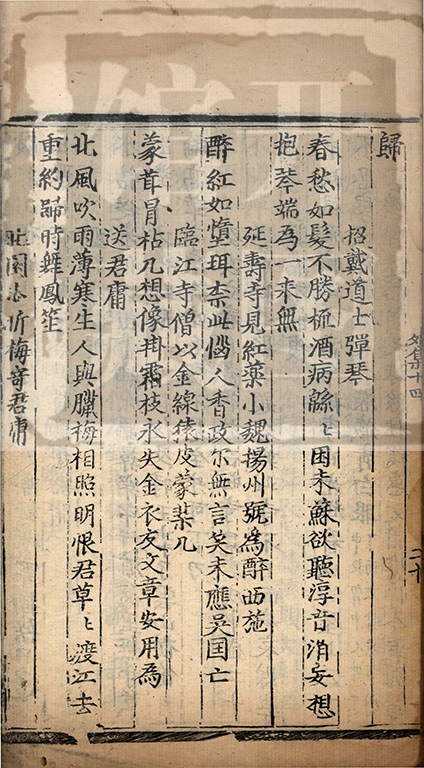 歸
招戴道士彈琴
春愁如髮不勝梳酒病緜〻困未蘇欲聽淳音消妄想
抱琴端為一來無
延壽寺見紅藥小魏揚州號為醉西施
醉紅如墮珥柰此惱人香政尔無言笑未應吴国亡
臨江寺僧以金線猿皮蒙棐几
蒙茸冒枯几想像掛霜枝永失金衣友文章安用為
送君庸
北風吹雨薄寒生人與臘梅相照明恨君草〻渡江去
重約歸時舞鳳笙
北園步折梅寄君庸
外集十四
二十